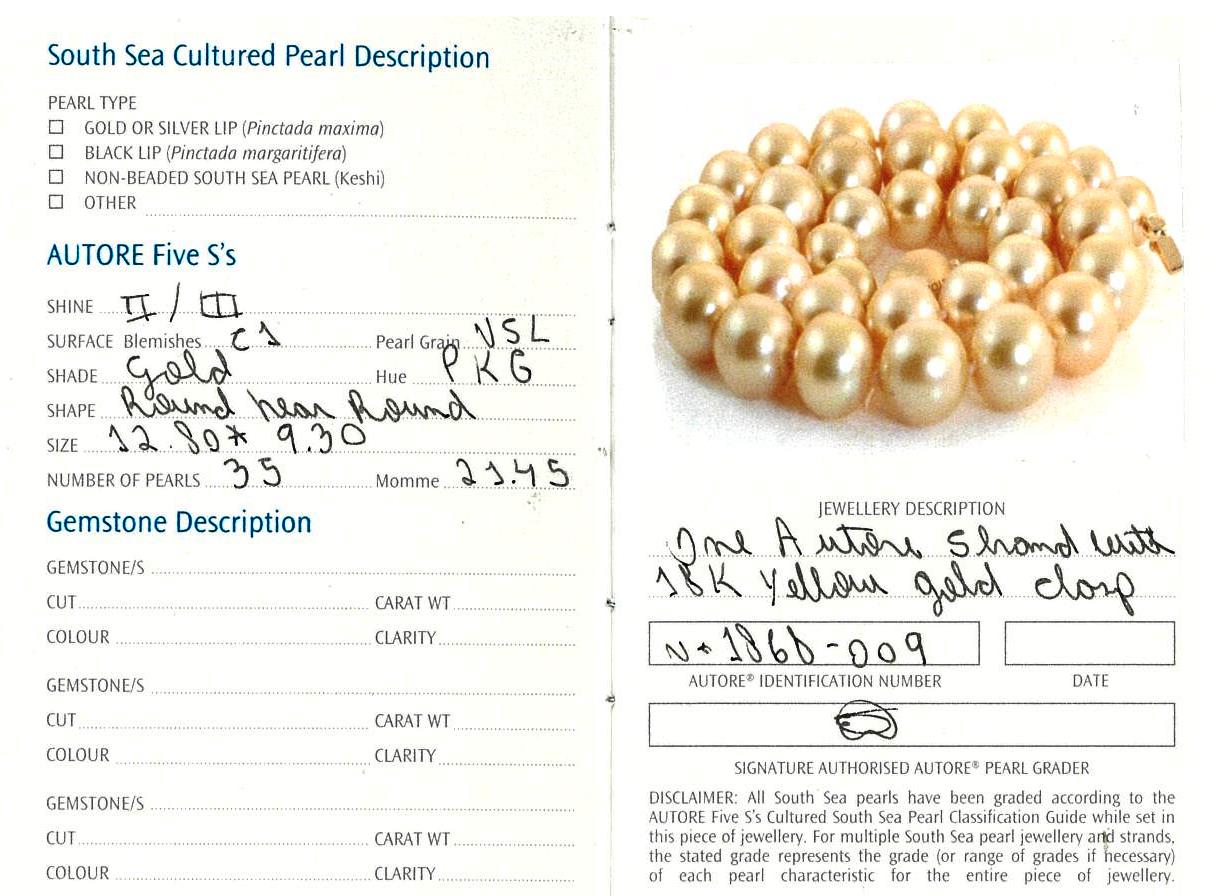 South Sea Cultured Pearl Description
PEARL TYPE
☐ GOLD OR SILVER LIP (Pinctada maxima)
☐ BLACK LIP (Pinctada margaritifera)
☐ NON-BEADED SOUTH SEA PEARL (Keshi)
☐ OTHER
AUTORE Five S's
SHINE II / III
SURFACE Blemishes C1 Pearl Grain VSL
SHADE Gold Hue PKG
SHAPE Round near Round
SIZE 12.80* 9.30
NUMBER OF PEARLS 35 Momme 21.45
Gemstone Description
GEMSTONE/S
CUT CARAT WT
COLOUR CLARITY
GEMSTONE/S
CUT CARAT WT
COLOUR CLARITY
GEMSTONE/S
CUT CARAT WT
COLOUR CLARITY
JEWELLERY DESCRIPTION
One Autore Strand with
18K Yellow gold clasp
AUTORE® IDENTIFICATION NUMBER DATE
SIGNATURE AUTHORISED AUTORE® PEARL GRADER
DISCLAIMER: All South Sea pearls have been graded according to the
AUTORE Five S's Cultured South Sea Pearl Classification Guide while set in
this piece of jewellery. For multiple South Sea pearl jewellery and strands,
the stated grade represents the grade (or range of grades if necessary)
of each pearl characteristic for the entire piece of jewellery.